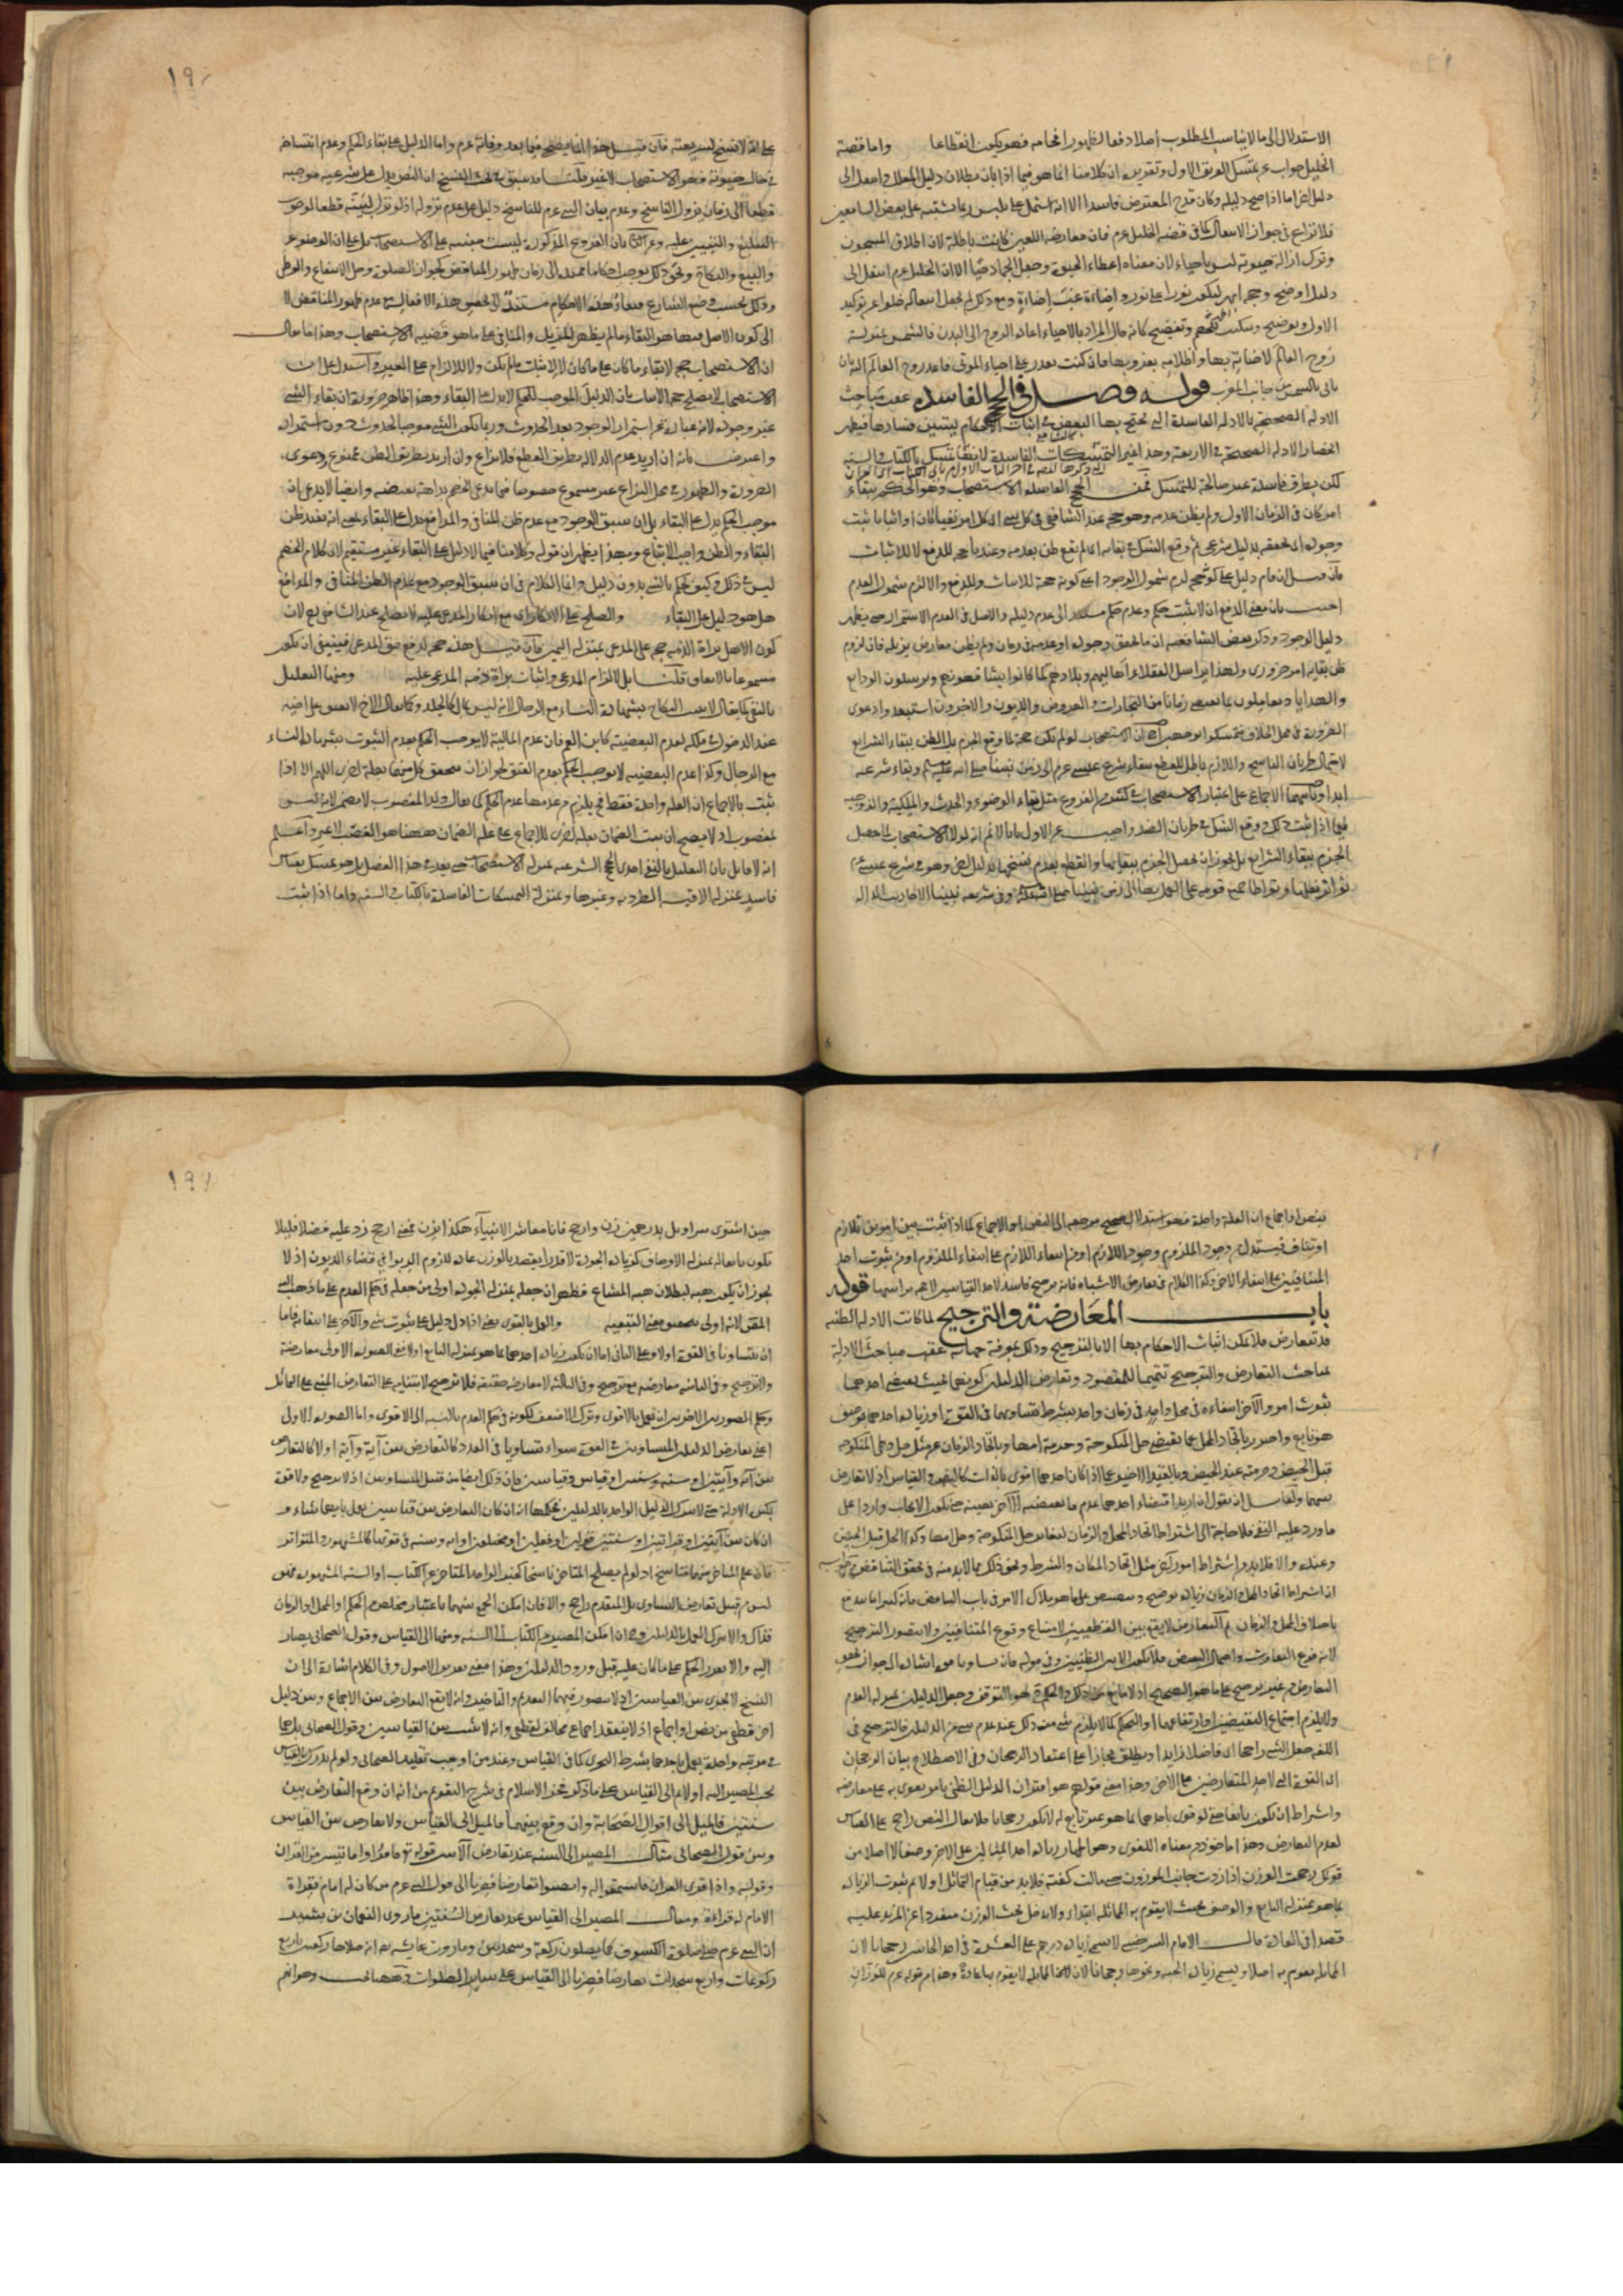 الاستدلال الى ما لا يناسب المطلوب اصلا دفعا لظهور افحامه فهو يكون انقطاعا واما قصة
الخليل جواب عن تمسك الفريق الاول وتقريره ان كلامنا انما هو فيما اذا بان بطلان دليل المعلل وانتقل الى
دليل اخر اما اذا صح دليله وكان قدح المعترض فاسدا الا انه اشتمل على تلبيس ربما يشتبه على بعض السامعين
فلا نزاع في جواز الانتقال كما في قصة الخليل عم فان معارضة اللعين كانت باطلة لان اطلاق المسجون
وترك ازالة حيوته ليس باحياء لان معناه اعطاء الحيوة وجعل الجماد حيا الا ان الخليل عم انتقل الى
دليل اوضح وحجة ابهر ليكون نورا على نور واضاءة غب اضاءة ومع ذلك لم يجعل انتقاله خلوا عن توكيد
الاول وتوضيح وتبكيت للخصم وتفضيح كانه قال المراد بالاحياء اعادة الروح الى البدن فالشمس بمنزلة
روح العالم لاضائته بها واظلامه بغروبها فان كنت تقدر على احياء الموتى فاعد روح العالم اليه بان
تاتي بالشمس من جانب المغرب قوله فصل في الحجج الفاسدة عقب مباحث
الادلة الصحيحة بالادلة الفاسدة التي يحتج بها البعض في اثبات الاحكام ليتبين فسادها فيظهر
انحصار الادلة الصحيحة في الاربعة وهذا غير التمسكات الفاسدة لانها تمسك بالكتاب والسنة
لكن بطرق فاسدة غير صالحة للتمسك فمن الحجج الفاسدة الاستصحاب وهو الحكم ببقاء
امر كان في الزمان الاول ولم يظن عدمه وهو حجة عند الشافعي في كل شيء اي كل امر نفيا كان او اثباتا ثبت
وجوده اي تحققه بدليل شرعي ثم وقع الشك في بقائه اي لم يقع ظن بعدمه وعندنا حجة للدفع لا للاثبات
فان قيل ان قام دليل على كونه حجة لزم شمول الوجود اعني كونه حجة للاثبات وللدفع والا لزم شمول العدم
اجيب بان معنى الدفع ان لا يثبت حكم وعدم حكم مستند الى عدم دليله والاصل في العدم الاستمرار حتى يظهر
دليل الوجود وذكر بعض الشافعية ان ما تحقق وجوده او عدمه في زمان ولم يظن معارض يزيله فان لزوم
ظن بقائه امر ضروري ولهذا يراسل العقلاء اهاليهم وبلادهم كما كانوا يشافهونهم ويرسلون الودائع
والهدايا ويعاملون بما يقتضي زمانا من التجارات والعروض والديون والاخرون استبعدوا دعوى
الضرورة في محل الخلاف فتمسكوا بوجهين احدهما ان الاستصحاب لو لم يكن حجة لما وقع الجزم بل الظن ببقاء الشرائع
لاحتمال طريان الناسخ واللازم باطل للقطع ببقاء شرع عيسى عم الى زمن نبينا صلى الله عليه وسلم وبقاء شرعه
ابدا وثانيهما الاجماع على اعتبار الاستصحاب في كثير من الفروع مثل بقاء الوضوء والحدث والملكية والزوجية
فيما اذا ثبت ذلك ووقع الشك في طريان الضد واجيب عن الاول بانا لا نم انه لولا الاستصحاب لما حصل
الجزم ببقاء الشرائع بل يجوز ان يحصل الجزم ببقائها والقطع بعدم نسخها بدليل اخر وهو في شرع عيسى عم
تواتر نقلها وتواطا جميع قومه على العمل بها الى زمن نبينا صلى الله عليه وفي شريعة نبينا الاحاديث الدالة
على انه لا نسخ لشريعته فان قيل هذا انما يصح فيما بعد وفاته عم واما الدليل على بقاء الحكم وعدم انتساخه
في حال حيوته فهو الاستصحاب لا غير قلنا قد سبق في بحث النسخ ان النص يدل على شرعية موجبه
قطعا الى زمان نزول الناسخ وعدم بيان النبي عم للناسخ دليل على عدم نزوله اذ لو نزل لبينه قطعا لوجوب
التبليغ والتبيين عليه وعن الثاني بان الفروع المذكورة ليست مبنية على الاستصحاب بل على ان الوضوء
والبيع والنكاح ونحو ذلك يوجب احكاما ممتدة الى زمان ظهور المناقض كجواز الصلوة وحل الانتفاع والوطئ
وذلك بحسب وضع الشارع فبقاء هذه الاحكام مستند الى تحقق هذه الافعال مع عدم ظهور المناقض لا
الى كون الاصل فيها هو البقاء ما لم يظهر المزيل والمنافي على ما هو قضية الاستصحاب وهذا ما يقال
ان الاستصحاب حجة لابقاء ما كان على ما كان لا لاثبات ما لم يكن ولا للالزام على الغير واستدل على ان
الاستصحاب لا يصلح حجة للاثبات بان الدليل الموجب للحكم لا يدل على البقاء وهذا ظاهر ضرورة ان بقاء الشيء
غير وجوده لانه عبارة عن استمرار الوجود بعد الحدوث وربما يكون الشيء موجبا لحدوث شيء دون استمراره
واعترض بانه ان اريد عدم الدلالة بطريق القطع فلا نزاع وان اريد بطريق الظن فممنوع ودعوى
الضرورة والظهور في محل النزاع غير مسموع خصوصا فيما يدعي الخصم بداهة نقيضه وايضا لا يدعي ان
موجب الحكم يدل على البقاء بل ان سبق الوجود مع عدم ظن المنافي والمدافع يدل على البقاء بمعنى انه يفيد ظن
البقاء والظن واجب الاتباع وبهذا يظهر ان قوله وكلامنا فيما لا دليل على البقاء غير مستقيم لان كلام الخصم
ليس في ذلك وكيف يحكم بالشيء بدون دليل وانما الكلام في ان سبق الوجود مع عدم الظن المنافي والمدافع
هل هو دليل على البقاء والصلح على الانكار اي مع انكار المدعى عليه لا يصلح عند الشافعي لان
كون الاصل براءة الذمة حجة على المدعي بمنزلة اليمين فان قيل هذه حجة لدفع حق المدعي فينبغي ان يكون
مسموعا بالاتفاق قلنا بل لالزام المدعي واثبات براءة ذمة المدعى عليه ومنها التعليل
بالنفي كما يقال لا يثبت النكاح بشهادة النساء مع الرجال لانه ليس بمال كالحد وكما يقال الاخ لا يعتق على اخيه
عند الدخول في ملكه لعدم البعضية كابن العم فان عدم المالية لا يوجب الحكم بعدم الثبوت بشهادة النساء
مع الرجال وكذا عدم البعضية لا يوجب الحكم بعدم العتق لجواز ان يتحقق كل منهما بعلة اخرى اللهم الا اذا
ثبت بالاجماع ان العلة واحدة فقط فح يلزم من عدمها عدم الحكم كما يقال ولد المغصوب لا يضمن لانه ليس
بمغصوب اذ لا يصح ان يثبت الضمان بعلة اخرى للاجماع على ان علة الضمان ههنا هو الغصب لا غير واعلم
انه لا قائل بان التعليل بالنفي احدى الحجج الشرعية بمنزلة الاستصحاب حتى يعد في هذا الفصل بل هو تمسك بقياس
فاسد بمنزلة الاقيسة الطردية وغيرها وبمنزلة التمسكات الفاسدة بالكتاب والسنة واما اذا ثبت
بنص او اجماع ان العلة واحدة فهو استدلال صحيح مرجعه الى النص او الاجماع كما اذا ثبت بين امرين تلازم
او تناف فيستدل من وجود الملزوم وجود اللازم او من انتفاء اللازم على انتفاء الملزوم او من ثبوت احد
المتنافيين على انتفاء الاخر وكذا الكلام في تعارض الاشباه فانه مرجح فاسد لاحد القياسين لا حجة براسها قوله
باب المعارضة والترجيح لما كانت الادلة الظنية
قد تتعارض فلا يمكن اثبات الاحكام بها الا بالترجيح وذلك بمعرفة جهاته عقب مباحث الادلة
بمباحث التعارض والترجيح تتميما للمقصود وتعارض الدليلين كونهما بحيث يقتضي احدهما
ثبوت امر والآخر انتفاءه في محل واحد في زمان واحد بشرط تساويهما في القوة او زيادة احدهما بوصف
هو تابع واحترز باتحاد المحل عما يقتضي حل المنكوحة وحرمة امها وباتحاد الزمان عن مثل حل وطئ المنكوحة
قبل الحيض وحرمته عند الحيض وبالقيد الاخير عما اذا كان احدهما اقوى بالذات كالنص والقياس اذ لا تعارض
بينهما ولقائل ان يقول ان اريد اقتضاء احدهما عدم ما يقتضيه الآخر بعينه حتى يكون الايجاب واردا على
ما ورد عليه النفي فلا حاجة الى اشتراط اتحاد المحل والزمان لتغاير حل المنكوحة وحل امها وكذا الحل قبل الحيض
وعنده والا فلا بد من اشتراط امور اخر مثل اتحاد المكان والشرط ونحو ذلك مما لا بد منه في تحقق التناقض وجوابه
ان اشتراط اتحاد المحل والزمان زيادة توضيح وتنصيص على ما هو ملاك الامر في باب التناقض فانه كثيرا ما يندفع
باختلاف المحل والزمان ثم التعارض لا يقع بين القطعيين لامتناع وقوع المتنافيين ولا يتصور الترجيح
لانه فرع التفاوت واحتمال النقيض فلا يكون الا بين الظنيين وفي قوله فان تساويا قوة اشارة الى جواز تحقق
التعارض من غير ترجيح على ما هو الصحيح اذ لا مانع من ذلك والحكم ح هو التوقف وجعل الدليلين بمنزلة العدم
ولا يلزم اجتماع النقيضين او ارتفاعهما او التحكم كما لا يلزم شيء من ذلك عند عدم شيء من الدليلين فالترجيح في
اللغة جعل الشيء راجحا اي فاضلا زايدا ويطلق مجازا على اعتقاد الرجحان وفي الاصطلاح بيان الرجحان
اي القوة التي لاحد المتعارضين على الاخر وهذا معنى قولهم هو اقتران الدليل الظني بامر يقوى به على معارضه
واشتراط ان يكون تابعا حتى لو قوي باحدهما بما هو غير تابع له لا يكون رجحانا فلا يقال النص راجح على القياس
لعدم التعارض وهذا ماخوذ من معناه اللغوي وهو اظهار زيادة احد المثلين على الاخر وصفا لا اصلا من
قولك رجحت الوزن اذا زدت جانب الموزون حتى مالت كفته فلا بد من قيام التماثل اولا ثم ثبوت الزيادة
بما هو بمنزلة التابع والوصف بحيث لا يقوم به المماثلة ابتداء ولا يدخل تحت الوزن منفردا عن المزيد عليه
قصدا في العادة قال الامام السرخسي لا يسمى زيادة درهم على العشرة في احد الجانبين رجحانا لان
المماثلة يقوم به اصلا ويسمى زيادة الحبة ونحوها رجحانا لان المماثلة لا يقوم بها عادة وهذا من قوله عم للوزان
حين اشترى سراويل بدرهمين زن وارجح فانا معاشر الانبياء هكذا نزن فمعنى ارجح زد عليه فضلا قليلا
يكون تابعا له بمنزلة الاوصاف كزيادة الجودة لا قدرا يقصد بالوزن عادة للزوم الربوا في قضاء الديون اذ لا
يجوز ان يكون هبة لبطلان هبة المشاع فظهر ان جعله بمنزلة الجودة اولى من جعله في حكم العدم على ما ذهب اليه
المص لانه اولى بتحقيق معنى التبعية والعمل بالاقوى يعني اذا دل دليل على ثبوت شيء والآخر على انتفائه فاما
ان يتساويا في القوة او لا وعلى الثاني اما ان يكون زيادة احدهما بما هو بمنزلة التابع او لا ففي الصورة الاولى معارضة
ولا ترجيح وفي الثانية معارضة مع ترجيح وفي الثالثة لا معارضة حقيقة فلا ترجيح لابتنائه على التعارض المنبئ عن التماثل
وحكم الصورتين الاخيرتين ان يعمل بالاقوى ويترك الاضعف لكونه في حكم العدم بالنسبة الى الاقوى واما الصورة الاولى
اعني تعارض الدليلين المتساويين في القوة سواء تساويا في العدد كالتعارض بين آية وآية او لا كالتعارض
بين آية وآيتين او سنة وسنتين او قياس وقياسين فان ذلك ايضا من قبيل المتساويين اذ لا ترجيح ولا قوة
بكثرة الادلة حتى لا يترك الدليل الواحد بالدليلين فحكمها انه ان كان التعارض بين قياسين يعمل بايهما شاء و
ان كان بين آيتين او قرائتين او سنتين قولين او فعلين او مختلفين او آية وسنة في قوتها كالمشهور والمتواتر
فان علم المتاخر منهما فناسخ اذ لو لم يصلح المتاخر ناسخا كخبر الواحد المتاخر عن الكتاب او السنة المشهورة فهو
ليس من قبيل تعارض التساوي بل المتقدم راجح والا فان امكن الجمع بينهما باعتبار مخلص من الحكم او المحل او الزمان
فذاك والا يترك العمل بالدليلين وح ان امكن المصير من الكتاب الى السنة ومنها الى القياس وقول الصحابي يصار
اليه والا تقرر الحكم على ما كان عليه قبل ورود الدليلين وهذا معنى تقرير الاصول وفي الكلام اشارة الى ان
النسخ لا يجري بين القياسين اذ لا يتصور فيهما التقديم والتاخير وانه لا يقع التعارض بين الاجماع وبين دليل
اخر قطعي من نص او اجماع اذ لا ينعقد اجماع مخالف لقطعي وانه لا ترتيب بين القياس وقول الصحابي بل هما
في مرتبة واحدة يعمل بايهما شاء بشرط التحري كما في القياس وعند من اوجب تقليد الصحابي ولو لم يدرك بالقياس
يجب المصير اليه اولا ثم الى القياس على ما ذكر فخر الاسلام في شرح التقويم من انه ان وقع التعارض بين
سنتين فالميل الى اقوال الصحابة وان وقع بينهما فالميل الى القياس ولا تعارض بين القياس
وبين قول الصحابي مثال المصير الى السنة عند تعارض الآيتين قوله تع فاقرؤا ما تيسر من القرآن
وقوله واذا قرئ القرآن فاستمعوا له وانصتوا تعارضا فصرنا الى قول النبي عم من كان له امام فقراءة
الامام له قراءة ومثال المصير الى القياس عند تعارض السنتين ما روى النعمان بن بشير
ان النبي عم صلى صلوة الكسوف كما يصلون ركعة وسجدتين وما روت عايشة انه صلاها ركعتين باربع
ركوعات واربع سجدات تعارضا فصرنا الى القياس على ساير الصلوات وههنا بحث وهو انهم